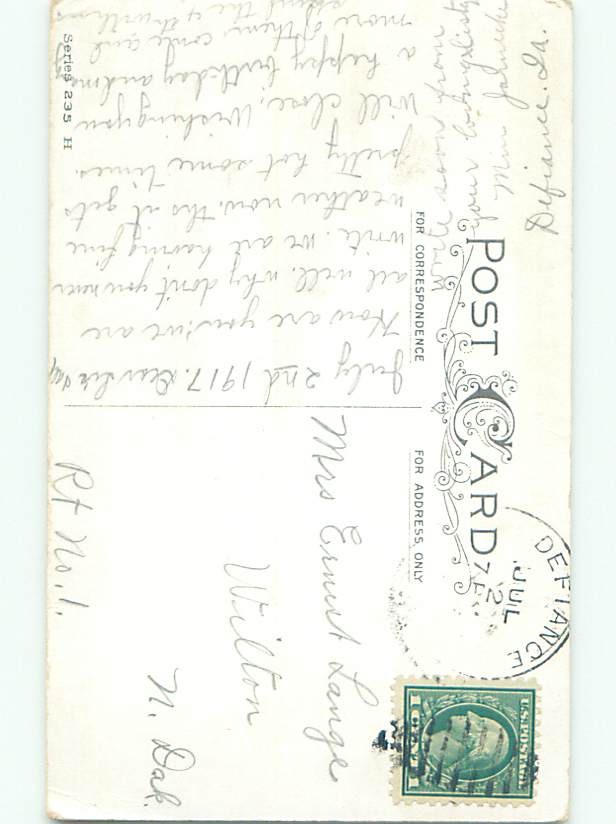 POST CARD
FOR CORRESPONDENCE
FOR ADDRESS ONLY
Series 235 H
DEFIANCE
JUL
2
U.S. POSTAGE
1 CENT 1
July 2nd 1917. Dear
How are you; we are
all well. why don't you never
write. we are having fine
weather now. tho it gets
pretty hot some times.
Will close, Wishing you
a happy birthday and many
more of them. come and
spend the 4th with us
Write soon from
your
Min
Defiance. Ia.
Mrs Ernest Lange
Wilton
N. Dak.
Rt No. 1.